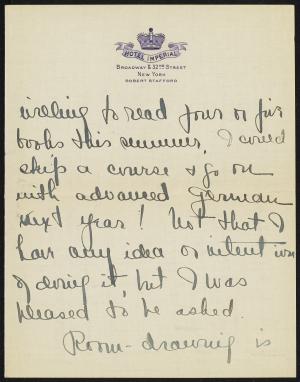 HOTEL IMPERIAL
BROADWAY & 32ND STREET
NEW YORK
ROBERT STAFFORD
willing to read four or five
books this summer, I could
skip a course & go on
with advanced German
next year! Not that I
have any idea or intention
of doing it, but I was
pleased to be asked.
Room-drawing is